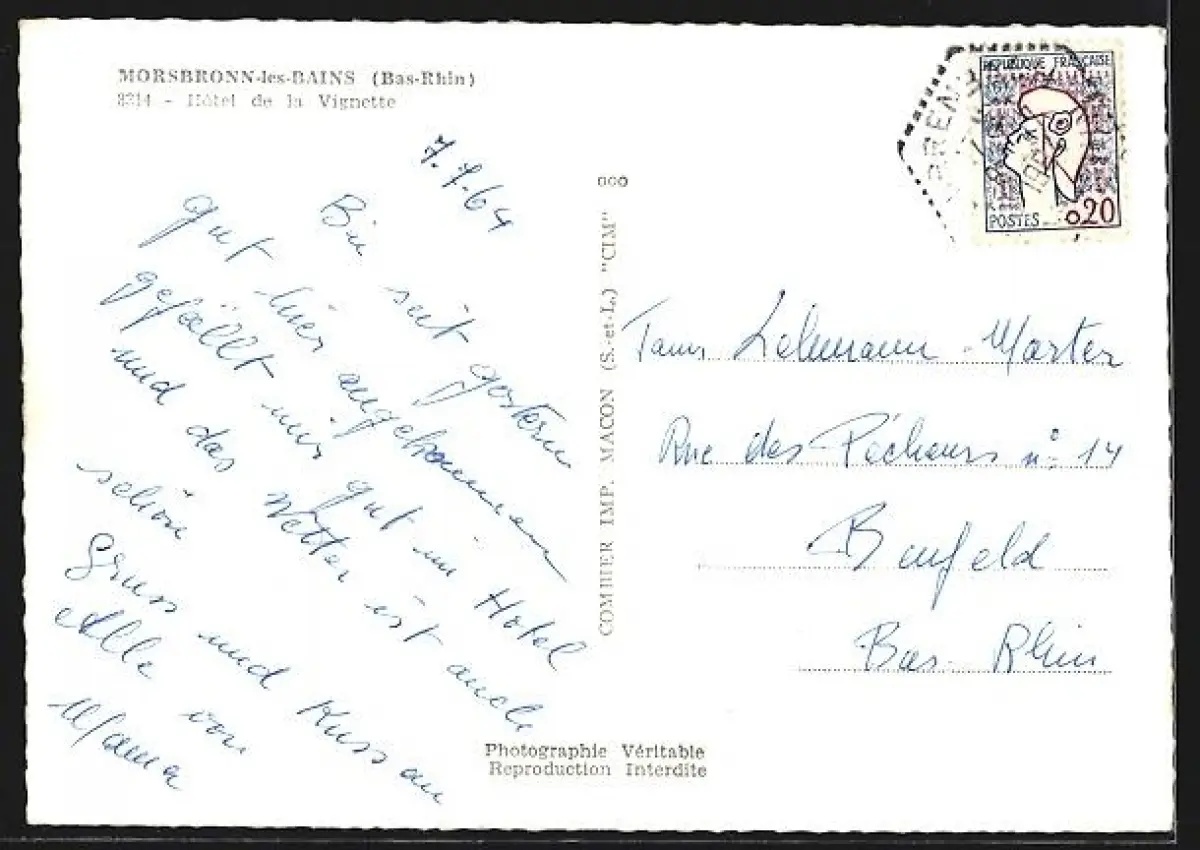 MORSBRONN-les-BAINS (Bas-Rhin)
8214 - Hôtel de la Vignette
7.7.64
Bin seit gestern
gut hier angekommen
gefällt mir gut im Hotel
und das Wetter ist auch
schön
Gruss und Kuss an
Alle von
Mama
COMBIER IMP. MACON (S.-et-L.) "CIM"
Photographie Véritable
Reproduction Interdite
REPUBLIQUE FRANÇAISE
POSTES 0,20
Lehmann - Marter
Rue des Pêcheurs n° 14
Benfeld
Bas-Rhin